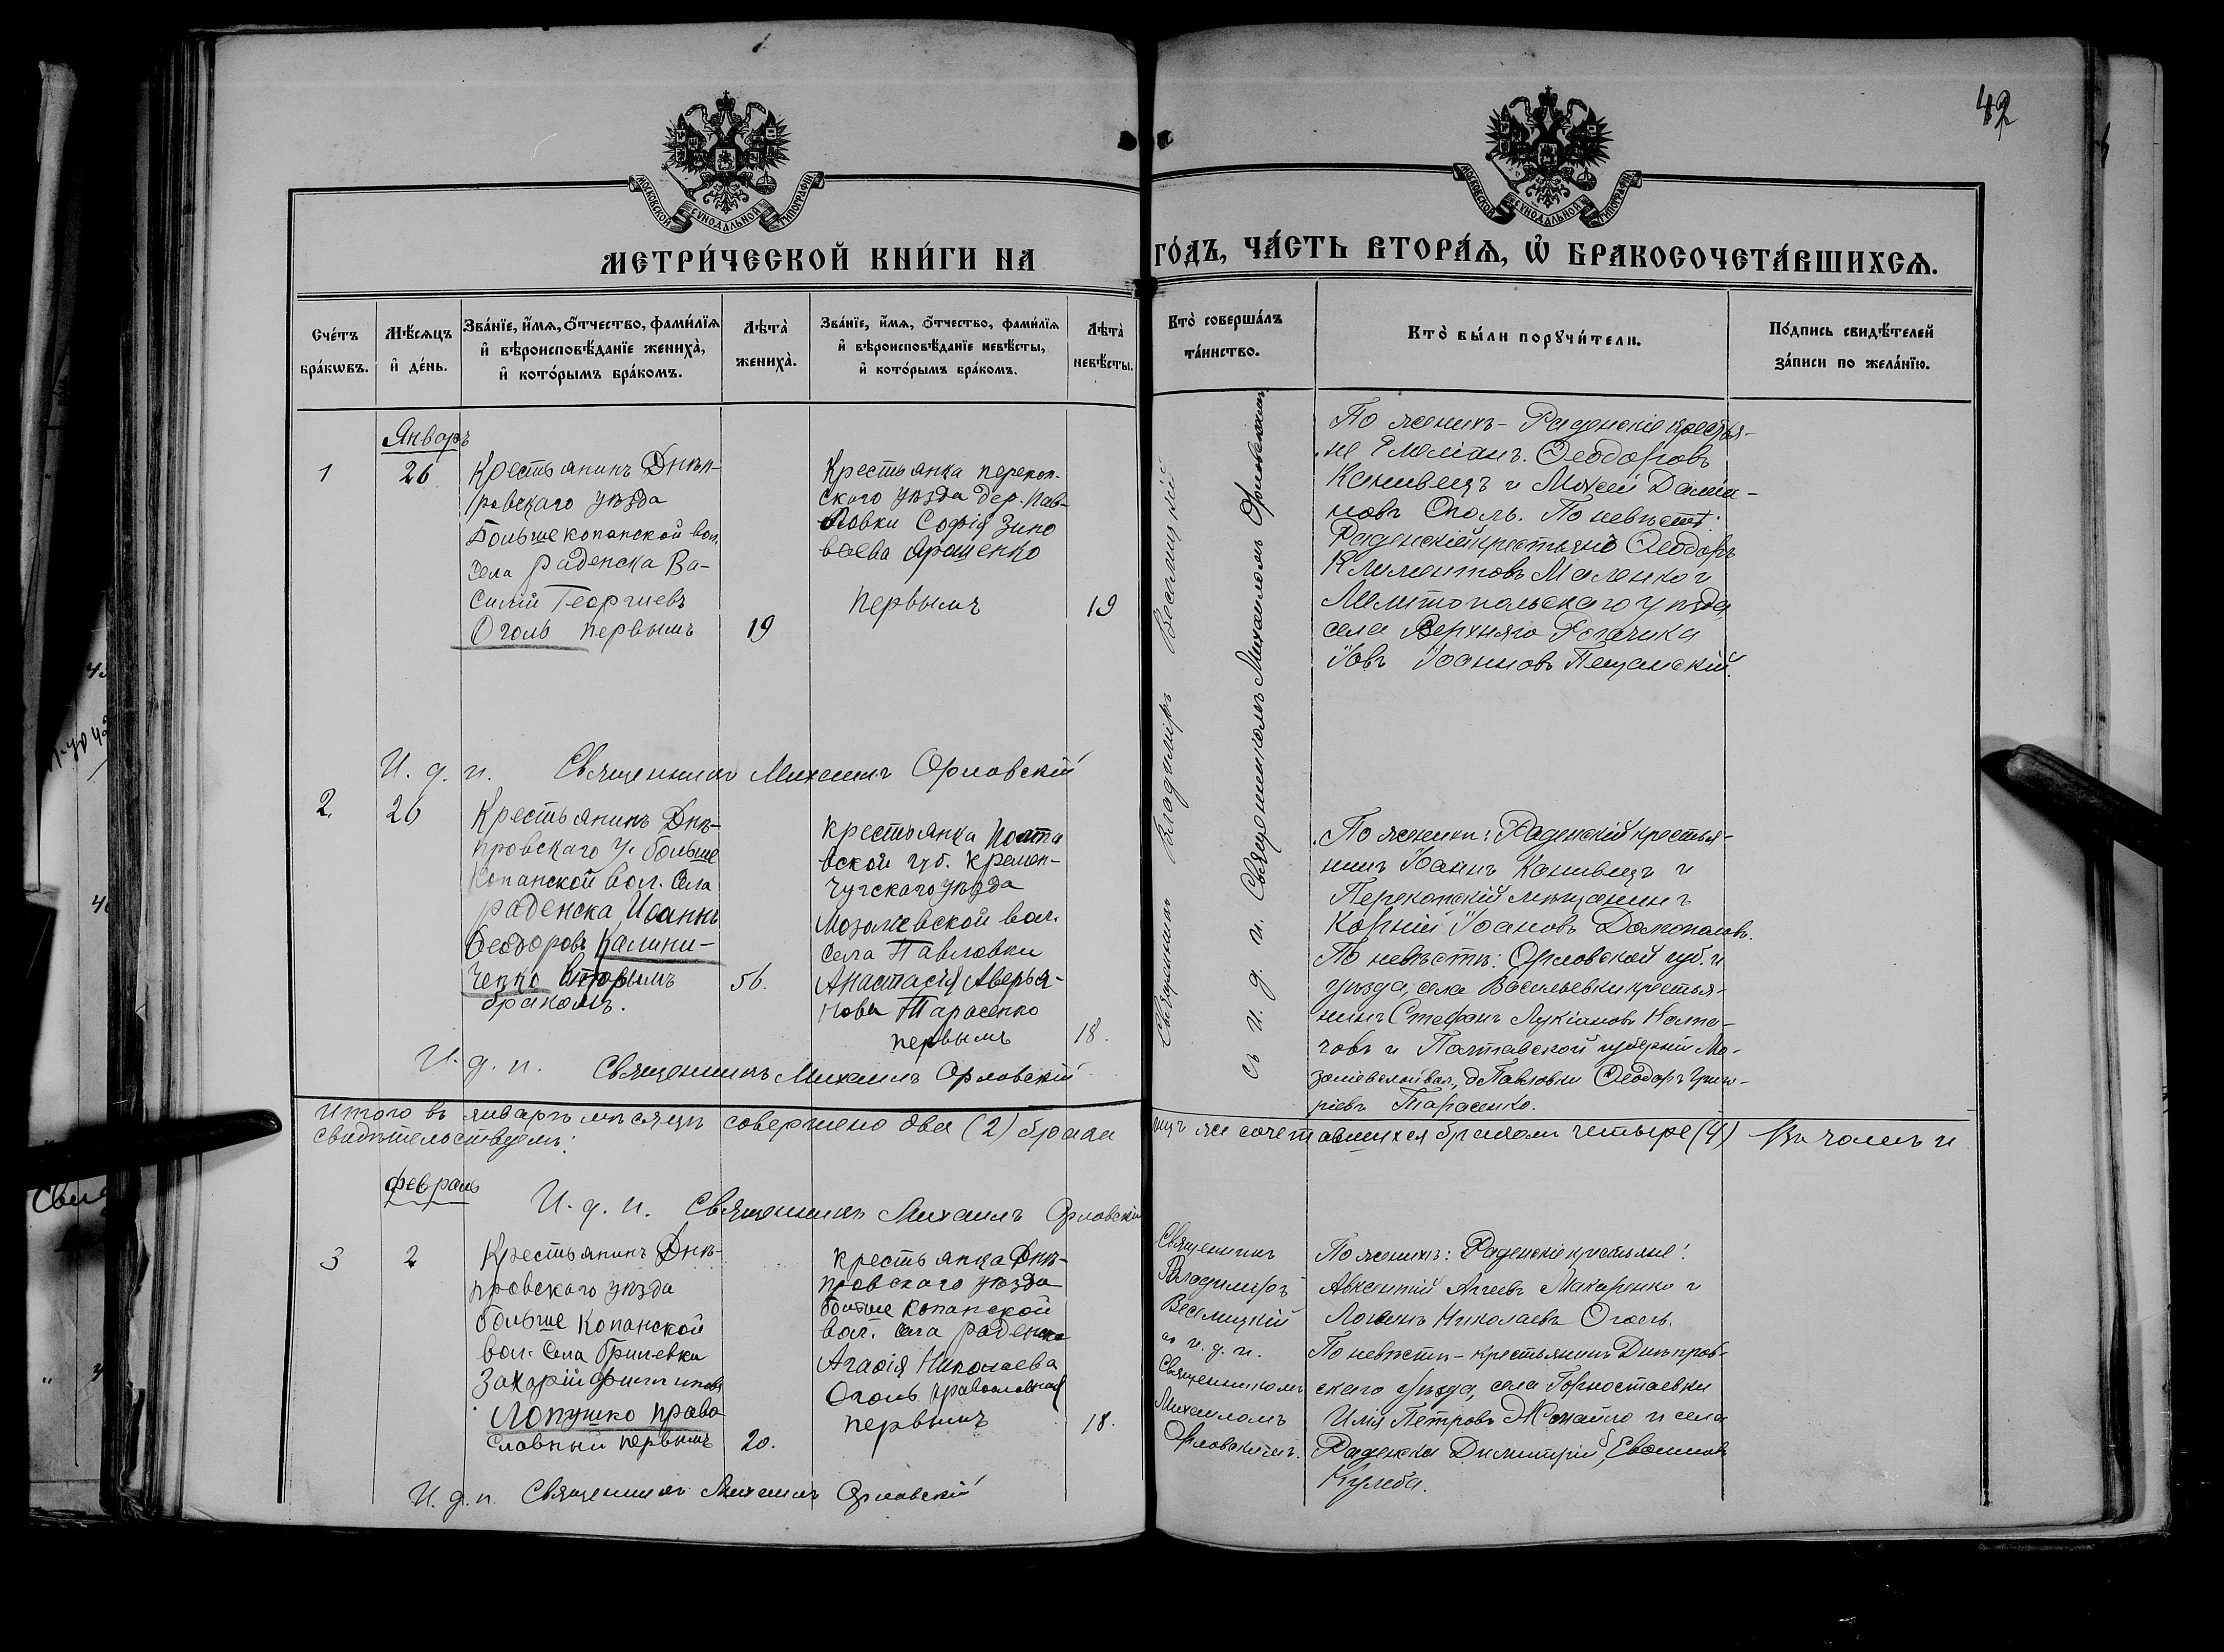 42
МОСКОВСКОЙ СѴНОДАЛЬНОЙ ТИПОГРАФІИ
МОСКОВСКОЙ СѴНОДАЛЬНОЙ ТИПОГРАФІИ
МЕТРИ́ЧЕСКОЙ КНИ́ГИ НА ГО́ДЪ, ЧА́СТЬ ВТОРА́Ѧ, Ѽ БРАКОСОЧЕТА́ВШИХСѦ.
Сче́тъ
бра́кѡвъ.
Мѣ́сѧцъ
и҆ де́нь.
Зва́нїе, и҆́мѧ, ѻ҆́тчество, фами́лїѧ
и҆ вѣроисповѣ́данїе жениха̀,
и҆ кото́рымъ бра́комъ.
Лѣта̀
жениха̀.
Зва́нїе, и҆́мѧ, ѻ҆́тчество, фами́лїѧ
и҆ вѣроисповѣ́данїе невѣ́сты,
и҆ кото́рымъ бра́комъ.
Лѣта̀
невѣ́сты.
Кто̀ соверша́лъ
та́инство.
Кто̀ бы́ли порꙋчи́тели.
По́дпись свидѣ́телей
за́писи по жела́нїю.
Январь
1
26
Крестьянинъ Днѣп-
ровскаго уѣзда
Большекопанской вол.
села Раденска Ва-
силій Георгиевъ
Оголь первымъ
19
Крестьянка перекоп-
скаго уѣзда дер. Пав-
ловки Софія Зино
веева Ярошенко
первымъ
19
Священникъ Владимиръ Веселицкій
съ и. д. п. Священникомъ Михаиломъ Орловскимъ
По женихѣ - Раденскіе крестья-
не Емеліанъ Ѳеодоровъ
Канивецъ и Моисей Даміа-
новъ Оголь. По невѣстѣ:
Раденскій крестьянинъ Ѳеодоръ
Климентовъ Маленко и
Мелитопольскаго уѣзда,
села Верхняго Рогачика
Іовъ Іоанновъ Пещанскій.
И. д. п. Священникъ Михаилъ Орловскій
2.
26
Крестьянинъ Днѣ-
провскаго у. больше
копанской вол. села
раденска Иоаннъ
Ѳеодоровъ Калини-
ченко вторымъ
бракомъ.
56.
крестьянка Полта
вской губ. Кремен-
чугскаго уѣзда
Мозолевской вол.
села Павловки
Анастасія Аверья-
нова Тарасенко
первымъ
18.
По женихѣ: Раденскій крестья-
нинъ Іоаннъ Канивецъ и
Перекопскій мѣщанинъ
Корній Іоановъ
По невѣстѣ: Орловской губ. и
уѣзда, села Васильевки крестья-
нинъ Стефанъ Лукіановъ
и Полтавской губерніи Мо-
золевской вол., д Павловки Ѳеодоръ Григо-
ріевъ Тарасенко.
И. д. п. Священникъ Михаилъ Орловскій
Итого въ январѣ мѣсяцѣ совершено два (2) брака лицъ же сочетавшихся бракомъ четыре (4) Въ чемъ и
свидѣтельствуемъ:
И. д. п. Священникъ Михаилъ Орловскій
февраль
3
2
Крестьянинъ Днѣ-
провскаго уѣзда
больше копанской
вол. села
Захарій Филиповъ
Лопушко право
славный первымъ
20.
крестьянка Днѣ-
провскаго уѣзда
больше копанской
вол. села раденска
Агафія Николаева
Оголь православная
первымъ
18.
Священникъ
Владимиръ
Веселицкій
съ и. д. п.
Священникомъ
Михаиломъ
Орловскимъ.
По женихѣ: Раденскіе крестьяне:
Авксентій Аггеевъ Макаренко и
Логинъ Николаевъ Оголь.
По невѣстѣ - крестьянинъ Днѣпров-
скаго уѣзда, села Горностаевки
Илія Петровъ и села
Раденска Димитрій
Кулеба.
И. д. п. Священникъ Михаилъ Орловскій